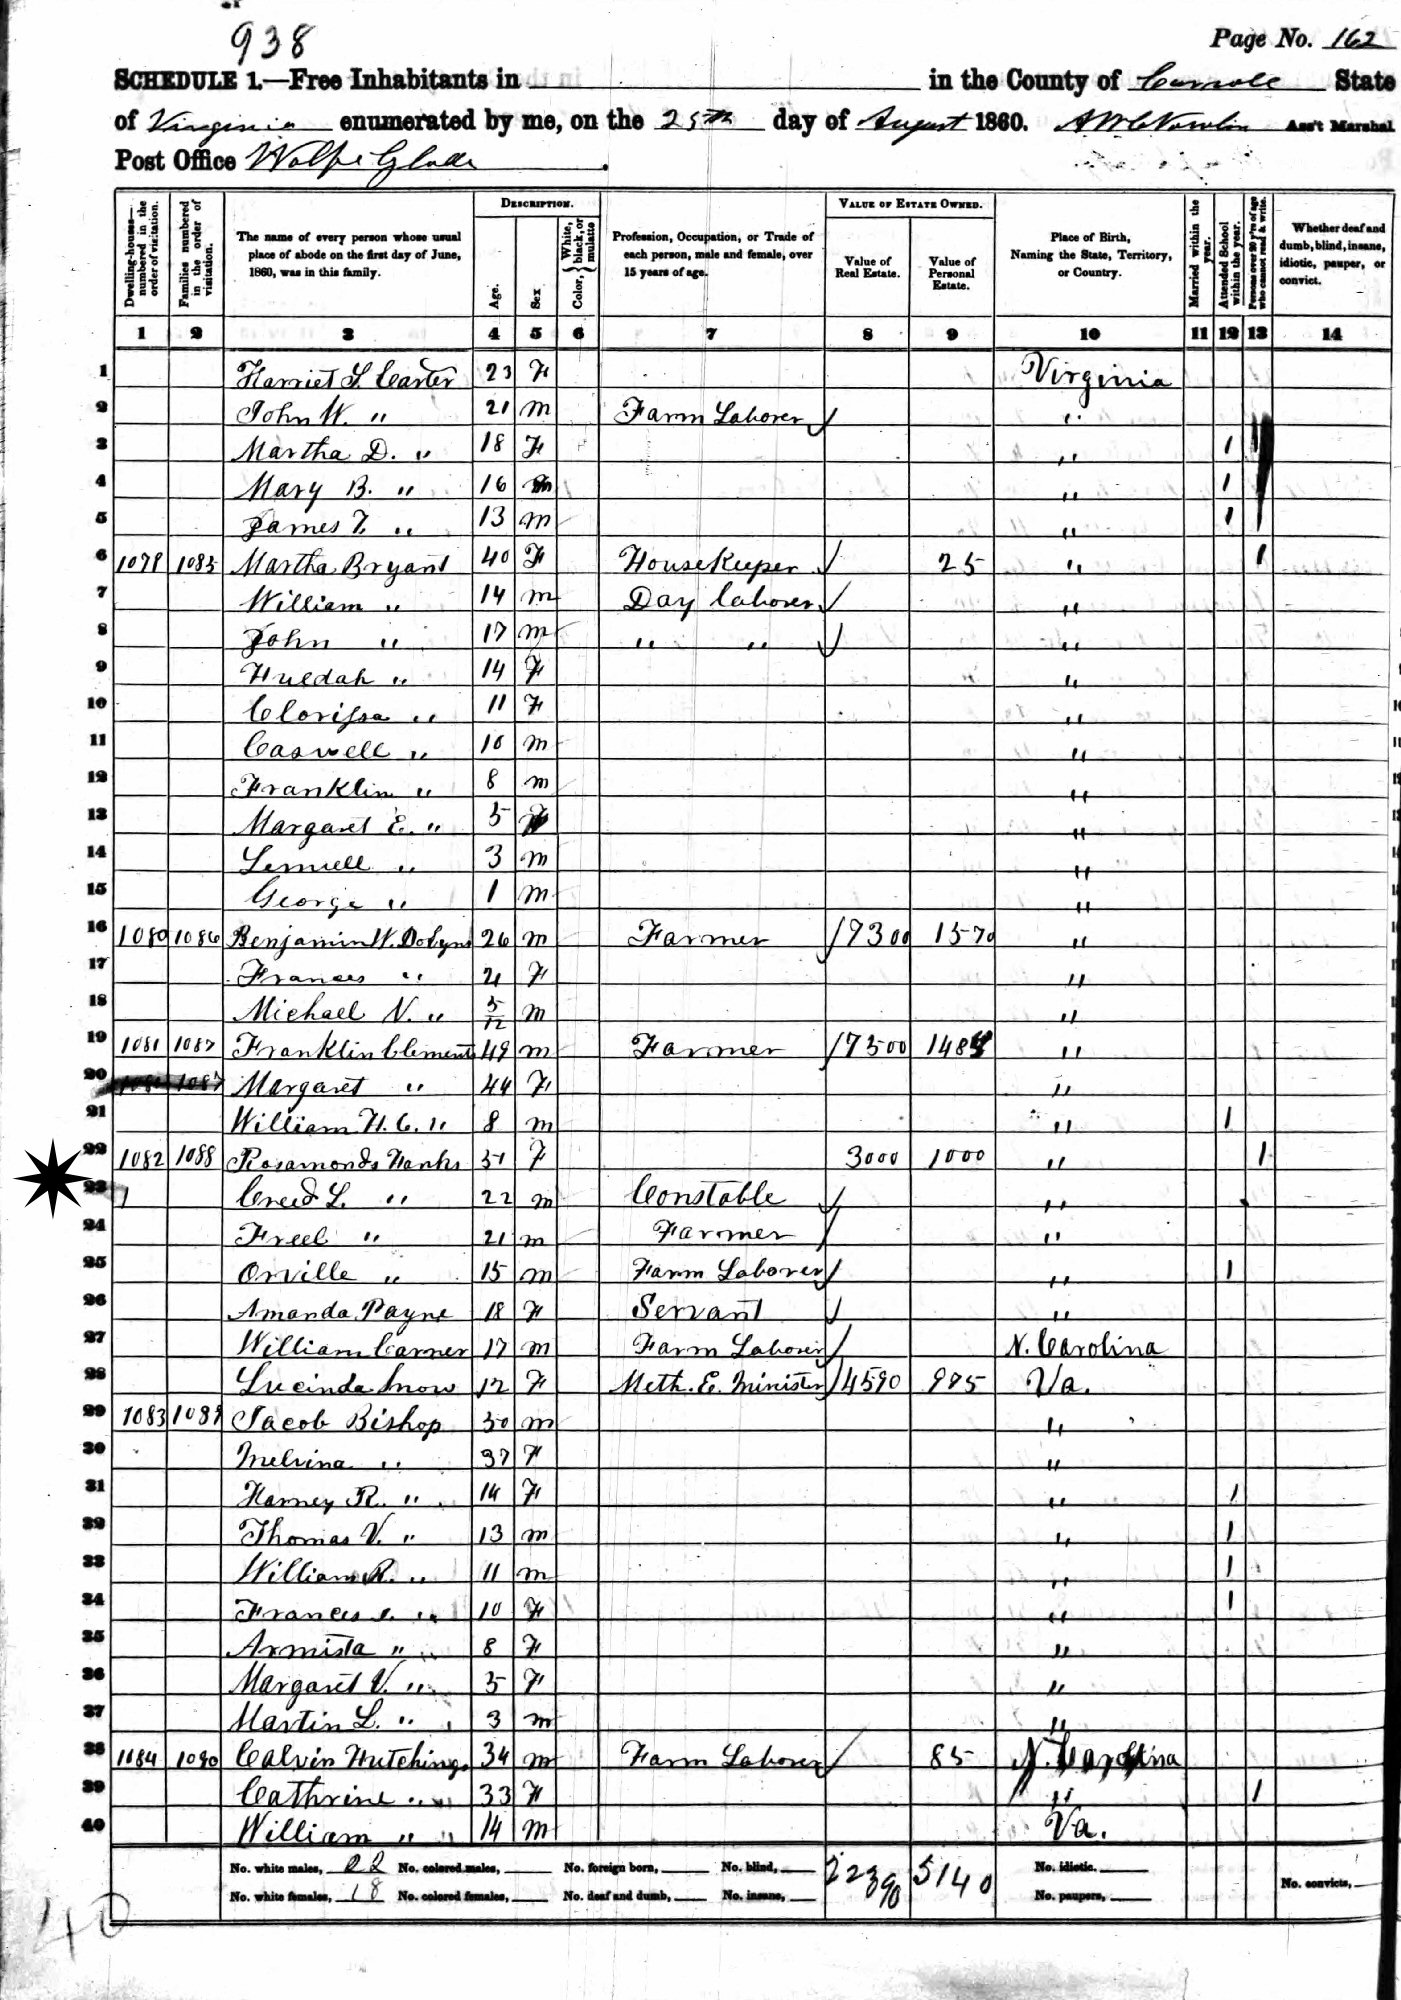 938
Page No. 162
SCHEDULE 1.—Free Inhabitants in in the County of Carroll State
of Virginia enumerated by me, on the 25th day of August 1860. Ass't Marshal
Post Office Wolfe Glade.
DESCRIPTION. VALUE OF ESTATE OWNED.
Dwelling-houses—numbered in the order of visitation.
Families numbered in the order of visitation.
The name of every person whose usual place of abode on the first day of June, 1860, was in this family.
Age.
Sex
Color, { White, black, or mulatto
Profession, Occupation, or Trade of each person, male and female, over 15 years of age.
Value of Real Estate.
Value of Personal Estate.
Place of Birth, Naming the State, Territory, or Country.
Married within the year.
Attended School within the year.
Persons over 20 y'rs of age who cannot read & write.
Whether deaf and dumb, blind, insane, idiotic, pauper, or convict.
1 2 3 4 5 6 7 8 9 10 11 12 13 14
1 Harriet Carter 23 F Virginia
2 John W. " 21 m Farm Laborer "
3 Martha D. " 18 F " 1
4 Mary B. " 16 " 1
5 James T. " 13 m " 1
6 1078 1085 Martha Bryant 40 F HouseKeeper 25 " 1
7 William " 14 m Day laborer "
8 John " 17 m " " "
9 Huldah " 14 F "
10 Clorissa " 11 F "
11 Caswell " 10 m "
12 Franklin " 8 m "
13 Margaret E. " 5 F "
14 Lemuell " 3 m "
15 George " 1 m "
16 1080 1086 Benjamin W. Dobyns 26 m Farmer 7300 1570 "
17 Frances " 21 F "
18 Michael N. " 5/12 m "
19 1081 1087 Franklin Clements 49 m Farmer 7500 "
20 1081 1087 Margaret " 44 F "
21 William H. C. " 8 m " 1
22 1082 1088 Rosamonds Hanks 51 F 3000 1000 " 1
23 Creed L. " 22 m Constable "
24 Freel " 21 m Farmer "
25 Orville " 15 m Farm Laborer " 1
26 Amanda Payne 18 F Servant "
27 William Carner 17 m Farm Laborer N. Carolina
28 Lucinda Snow 12 F Meth. E. Minister 4590 975 Va.
29 1083 1089 Jacob Bishop 50 m "
30 Melvina " 37 F "
31 Harney R. " 14 F " 1
32 Thomas V. " 13 m " 1
33 William R. " 11 m " 1
34 Frances " 10 F " 1
35 Armista " 8 F "
36 Margaret V. " 5 F "
37 Martin L. " 3 m "
38 1084 1090 Calvin Hutchings 34 m Farm Laborer 85 N. Carolina
39 Cathrine " 33 F " 1
40 William " 14 m Va.
No. white males, 22 No. colored males, No. foreign born, No. blind, 22390 5140 No. idiotic.
No. white females, 18 No. colored females, No. deaf and dumb, No. insane, No. paupers, No. convicts,
40